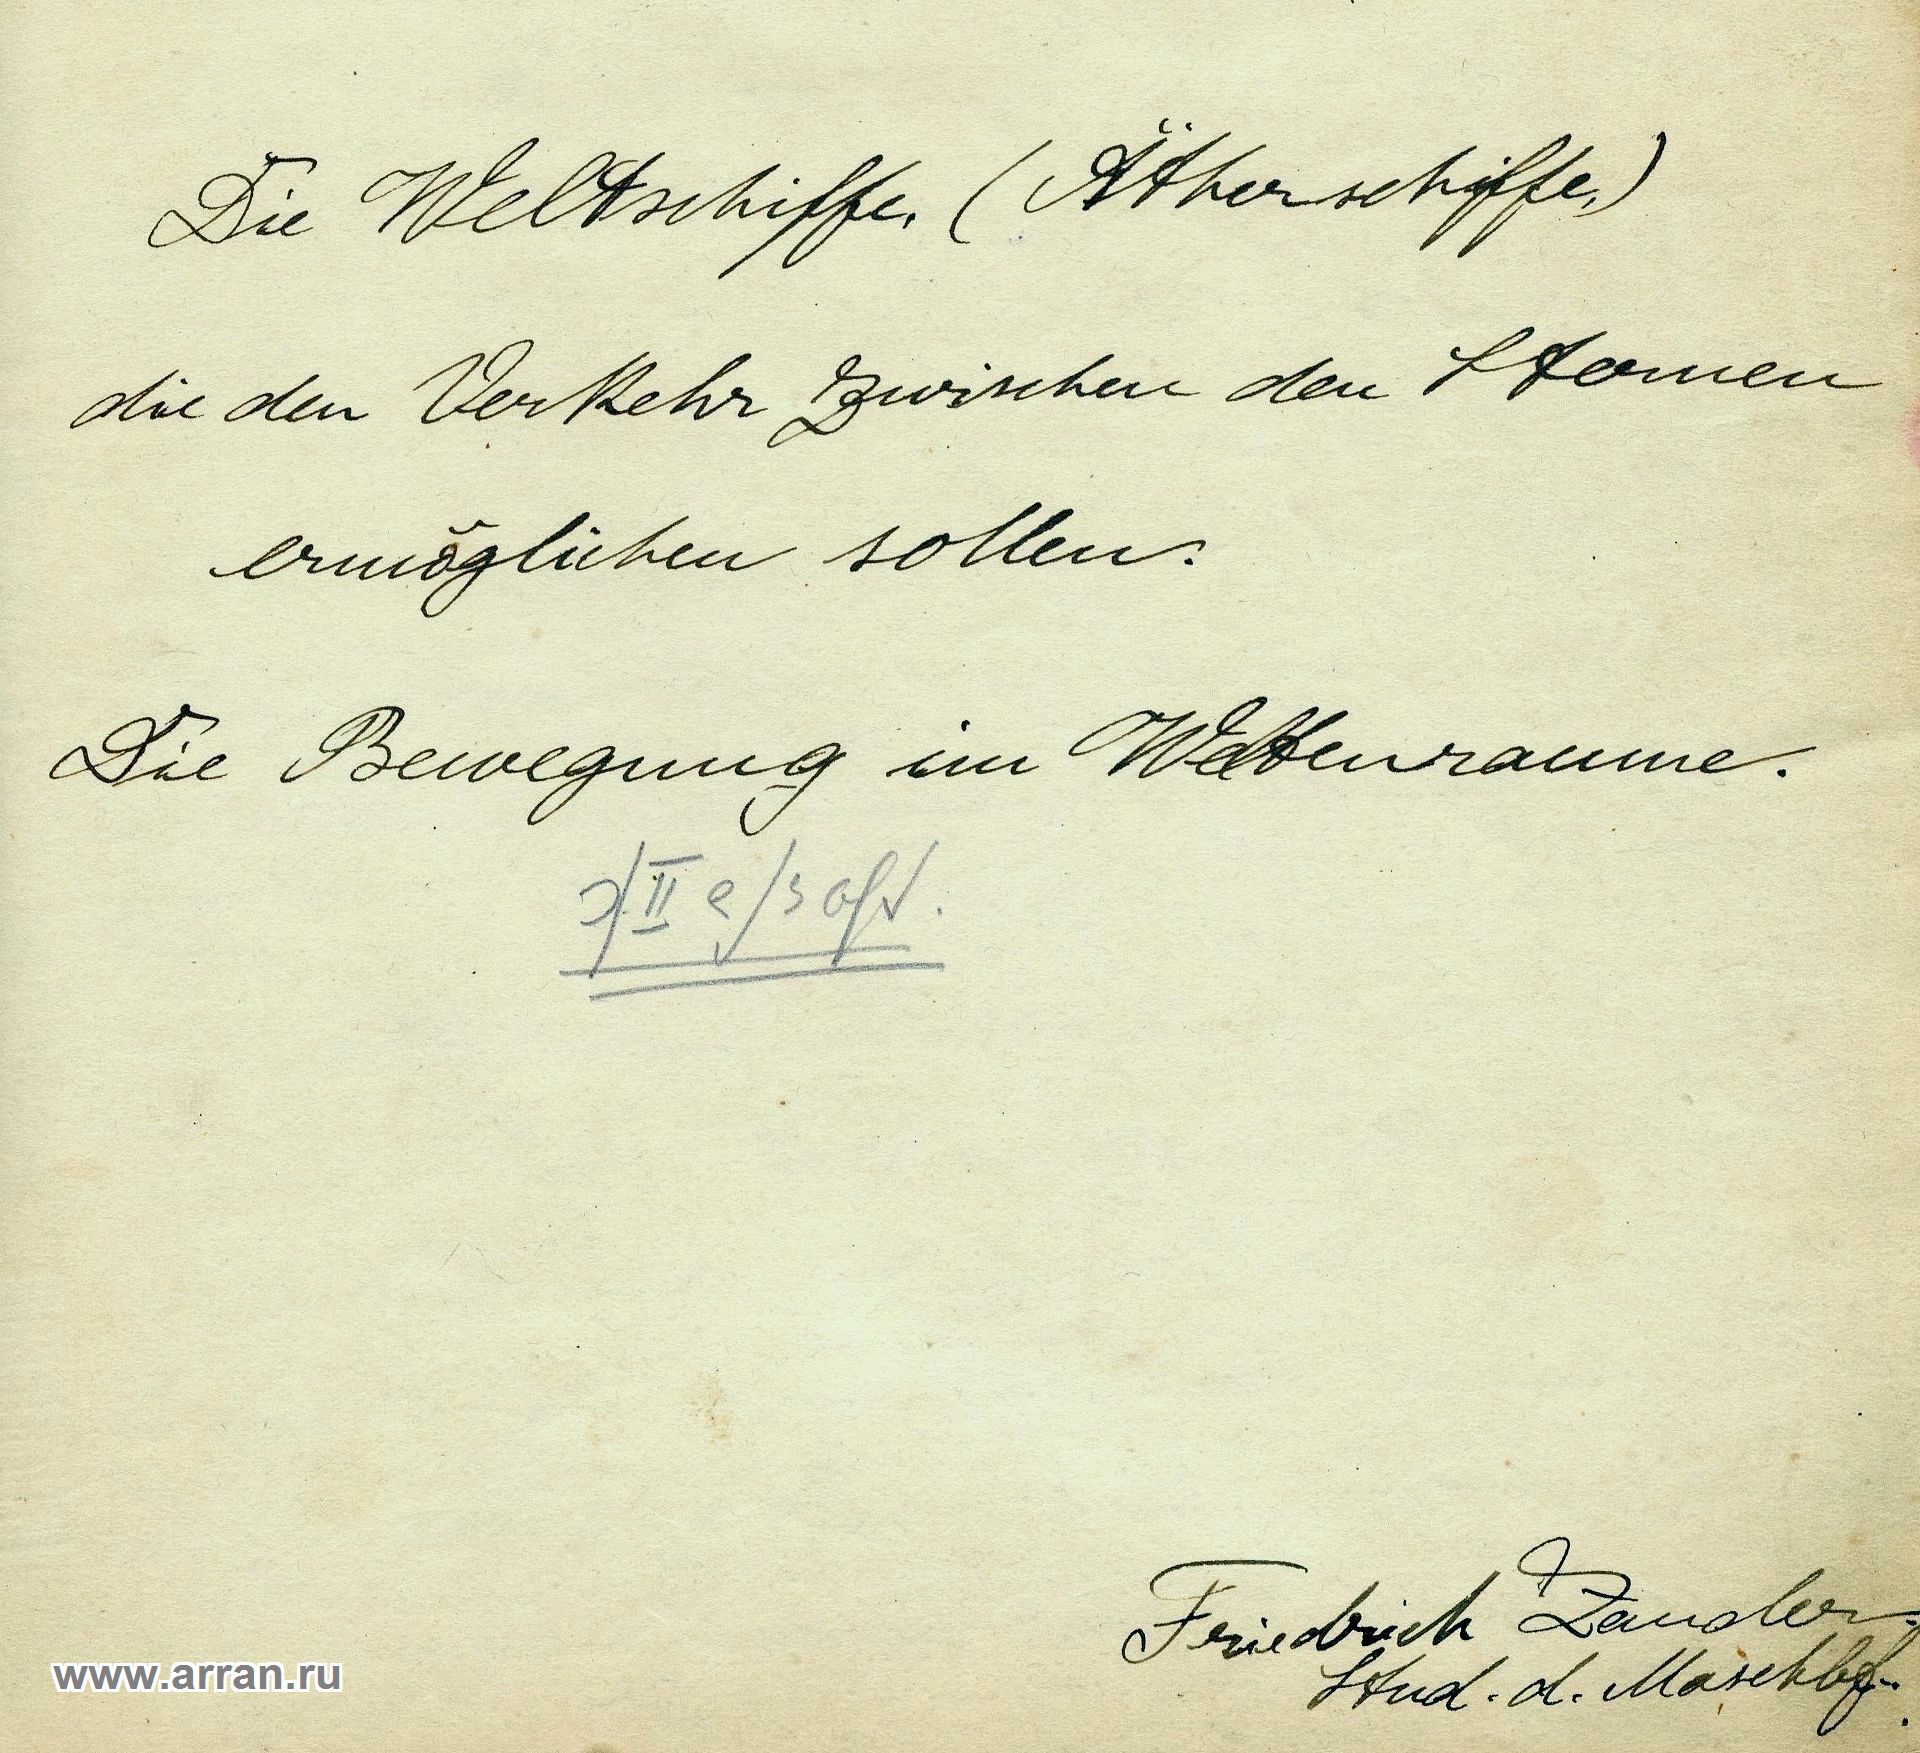 Die Weltschiffe, (Ätherschiffe,)
die den Verkehr zwischen den Sternen
ermöglichen sollen.
Die Bewegung im Weltenraume.
Friedrich Zander.
Stud. d. Masch
www.arran.ru